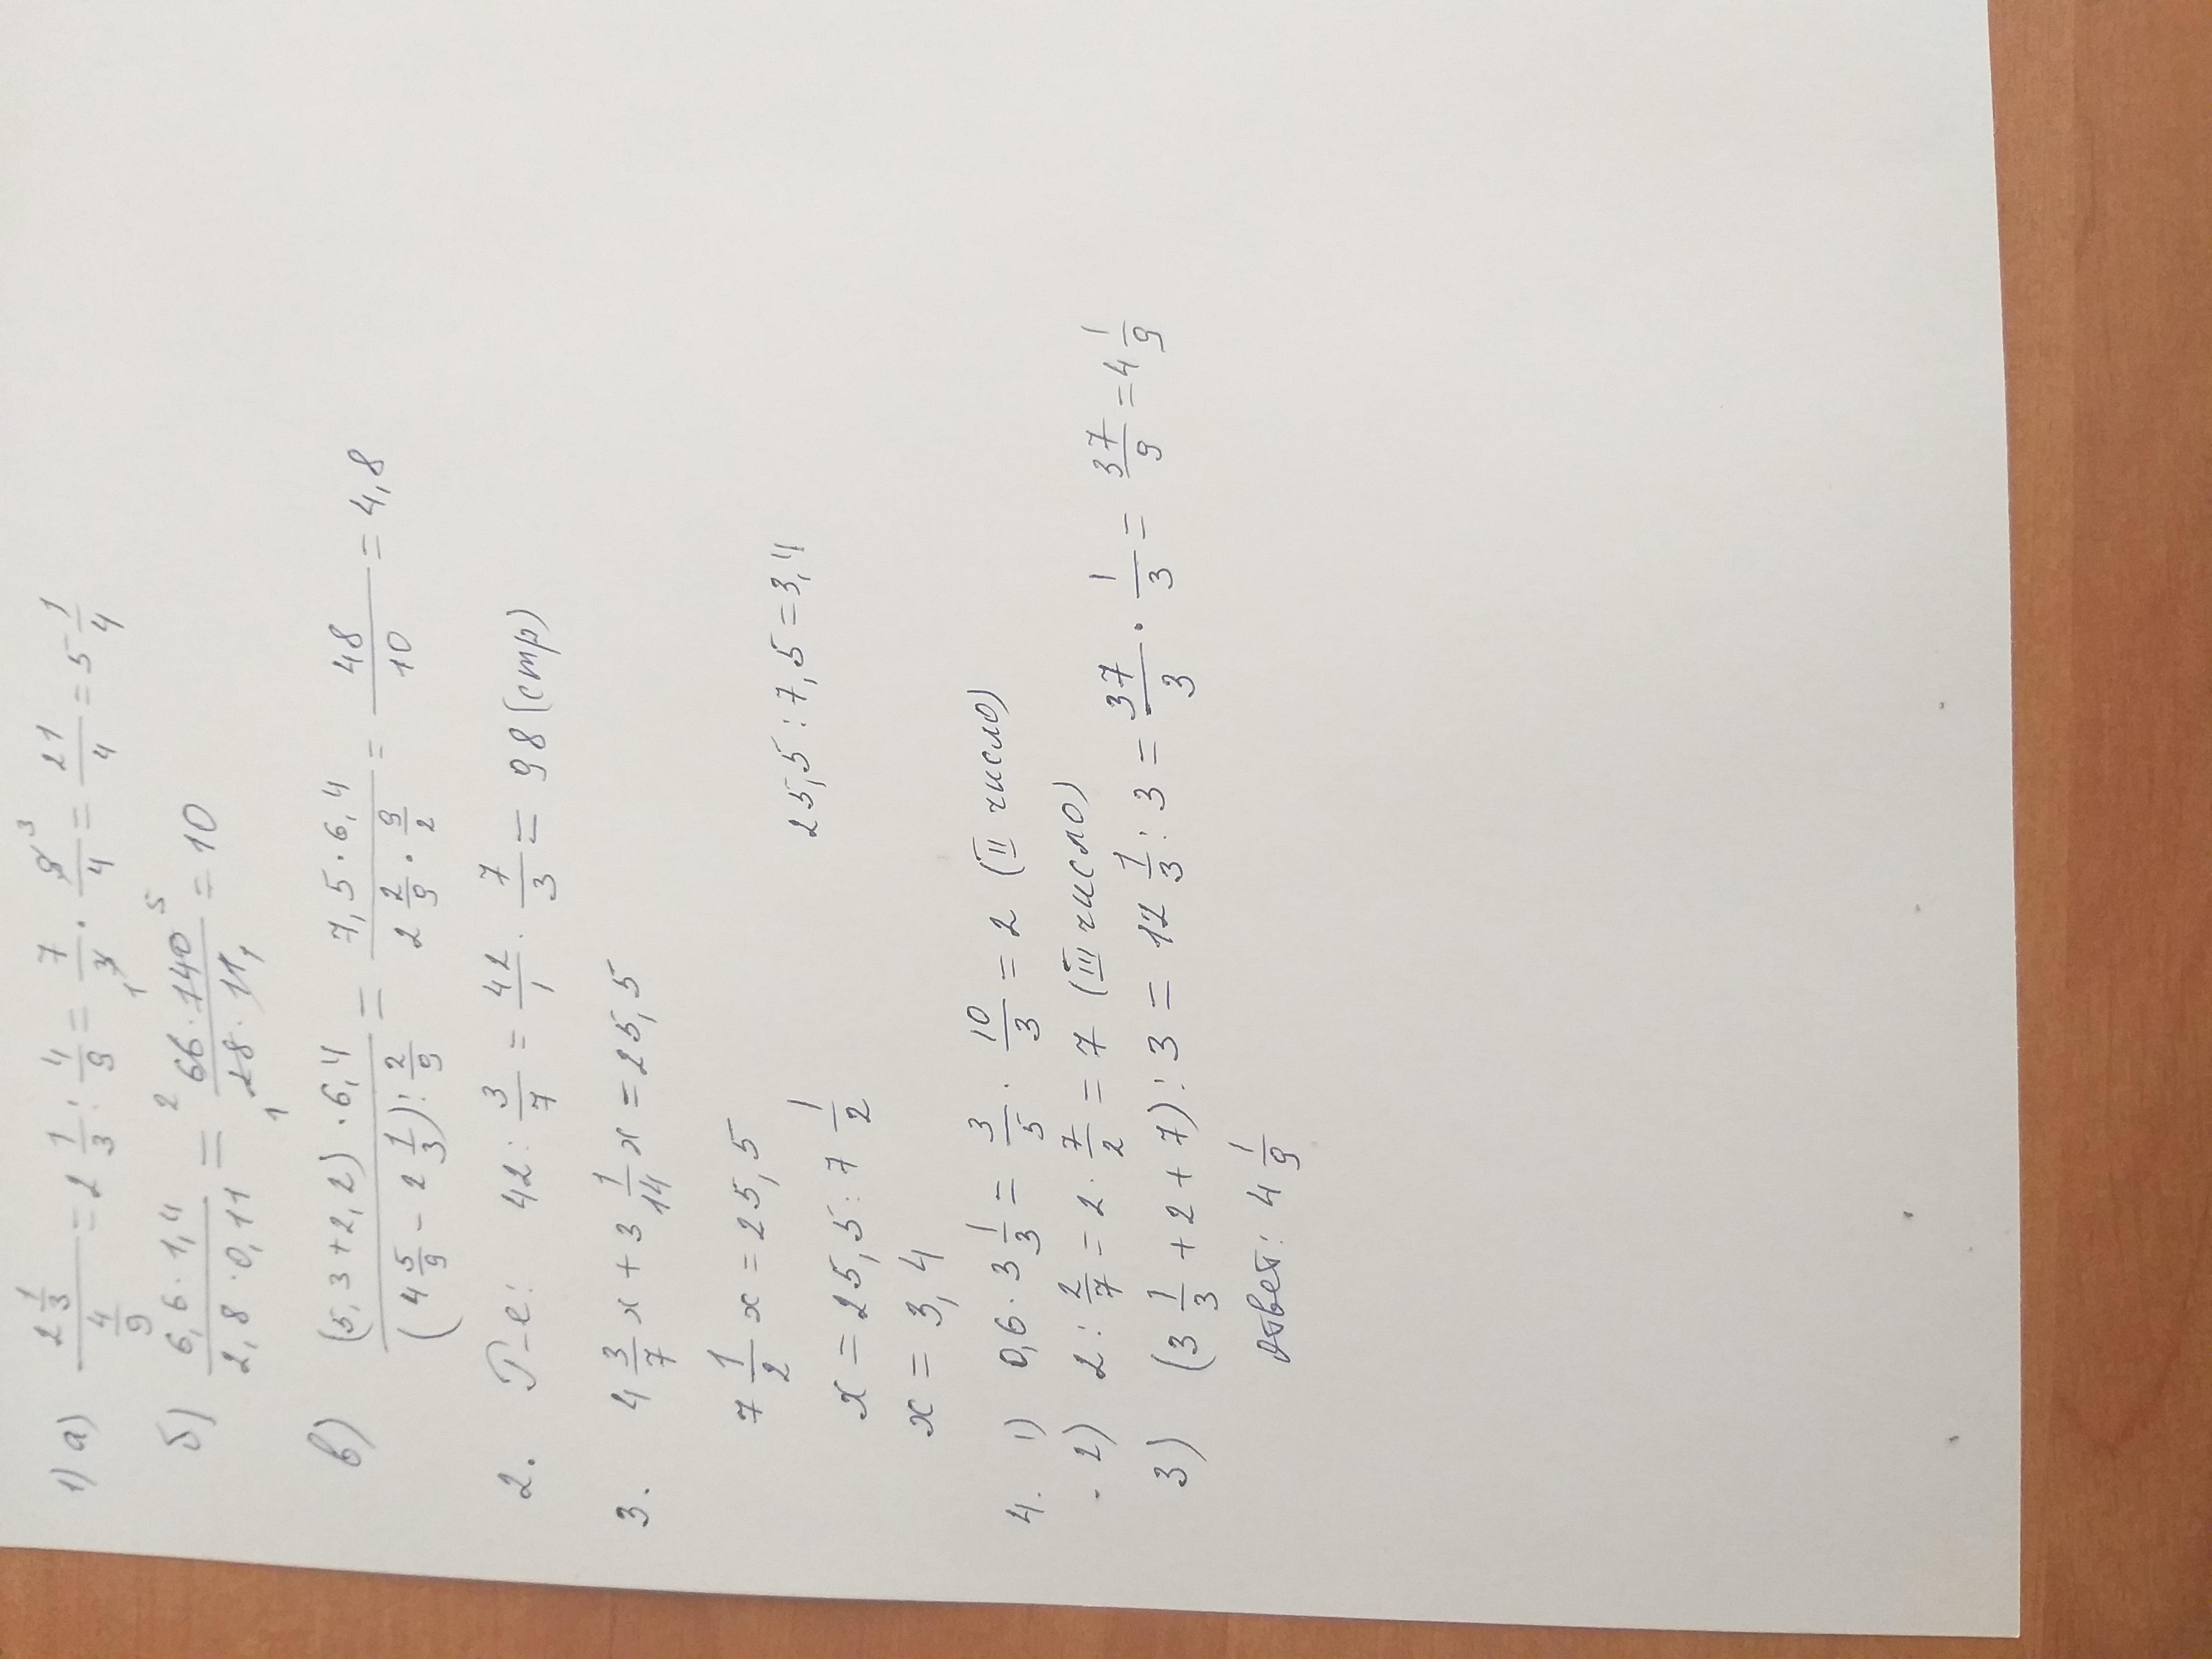 1) а) 2 1/3 / 4/9 = 2 1/3 : 4/9 = 7/3 · 9/4 = 21/4 = 5 1/4 (1, 3)
б) 6,6 · 1,4 / 2,8 · 0,11 = 66 · 140 / 28 · 11 = 10 (2, 5, 1, 1)
в) (5,3 + 2,2) · 6,4 / (4 5/9 - 2 1/3) : 2/9 = 7,5 · 6,4 / 2 2/9 · 9/2 = 48/10 = 4,8
2. П-е: 42 : 3/7 = 42/1 · 7/3 = 98 (стр)
3. 4 3/7 x + 3 1/14 x = 25,5
7 1/2 x = 25,5
25,5 : 7,5 = 3,4
x = 25,5 : 7 1/2
x = 3,4
4. 1) 0,6 · 3 1/3 = 3/5 · 10/3 = 2 (II число)
2) 2 : 2/7 = 2 · 7/2 = 7 (III число)
3) (3 1/3 + 2 + 7) : 3 = 12 1/3 : 3 = 37/3 · 1/3 = 37/9 = 4 1/9
Ответ: 4 1/9